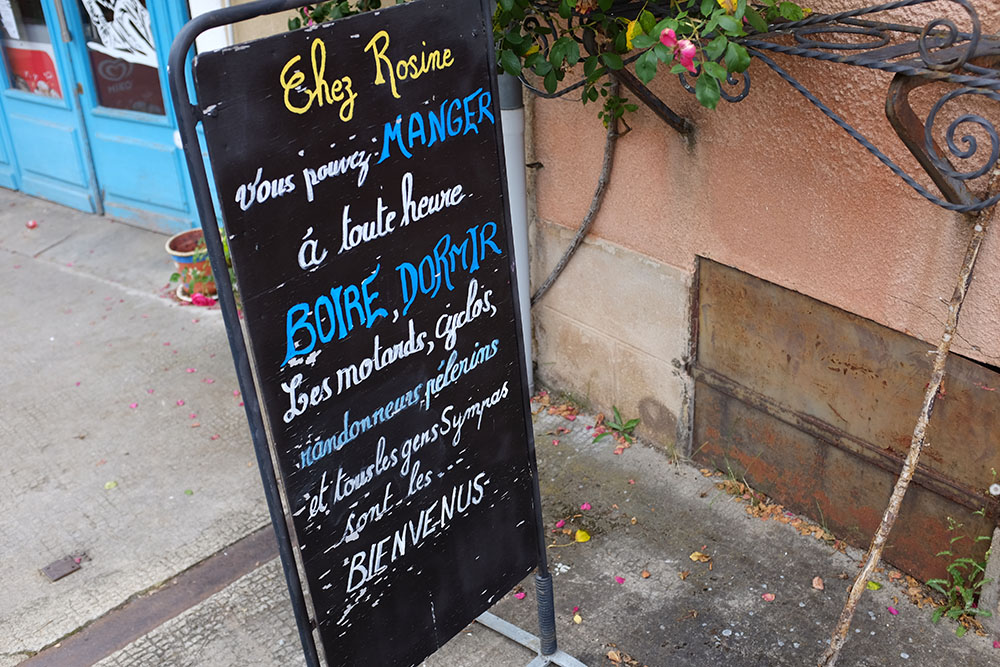 Chez Rosine
Vous pouvez MANGER
á toute heure
BOIRE, DORMIR
Les motards, cyclos,
randonneurs, pélerins
et tous les gens Sympas
sont les...
BIENVENUS
MIKO